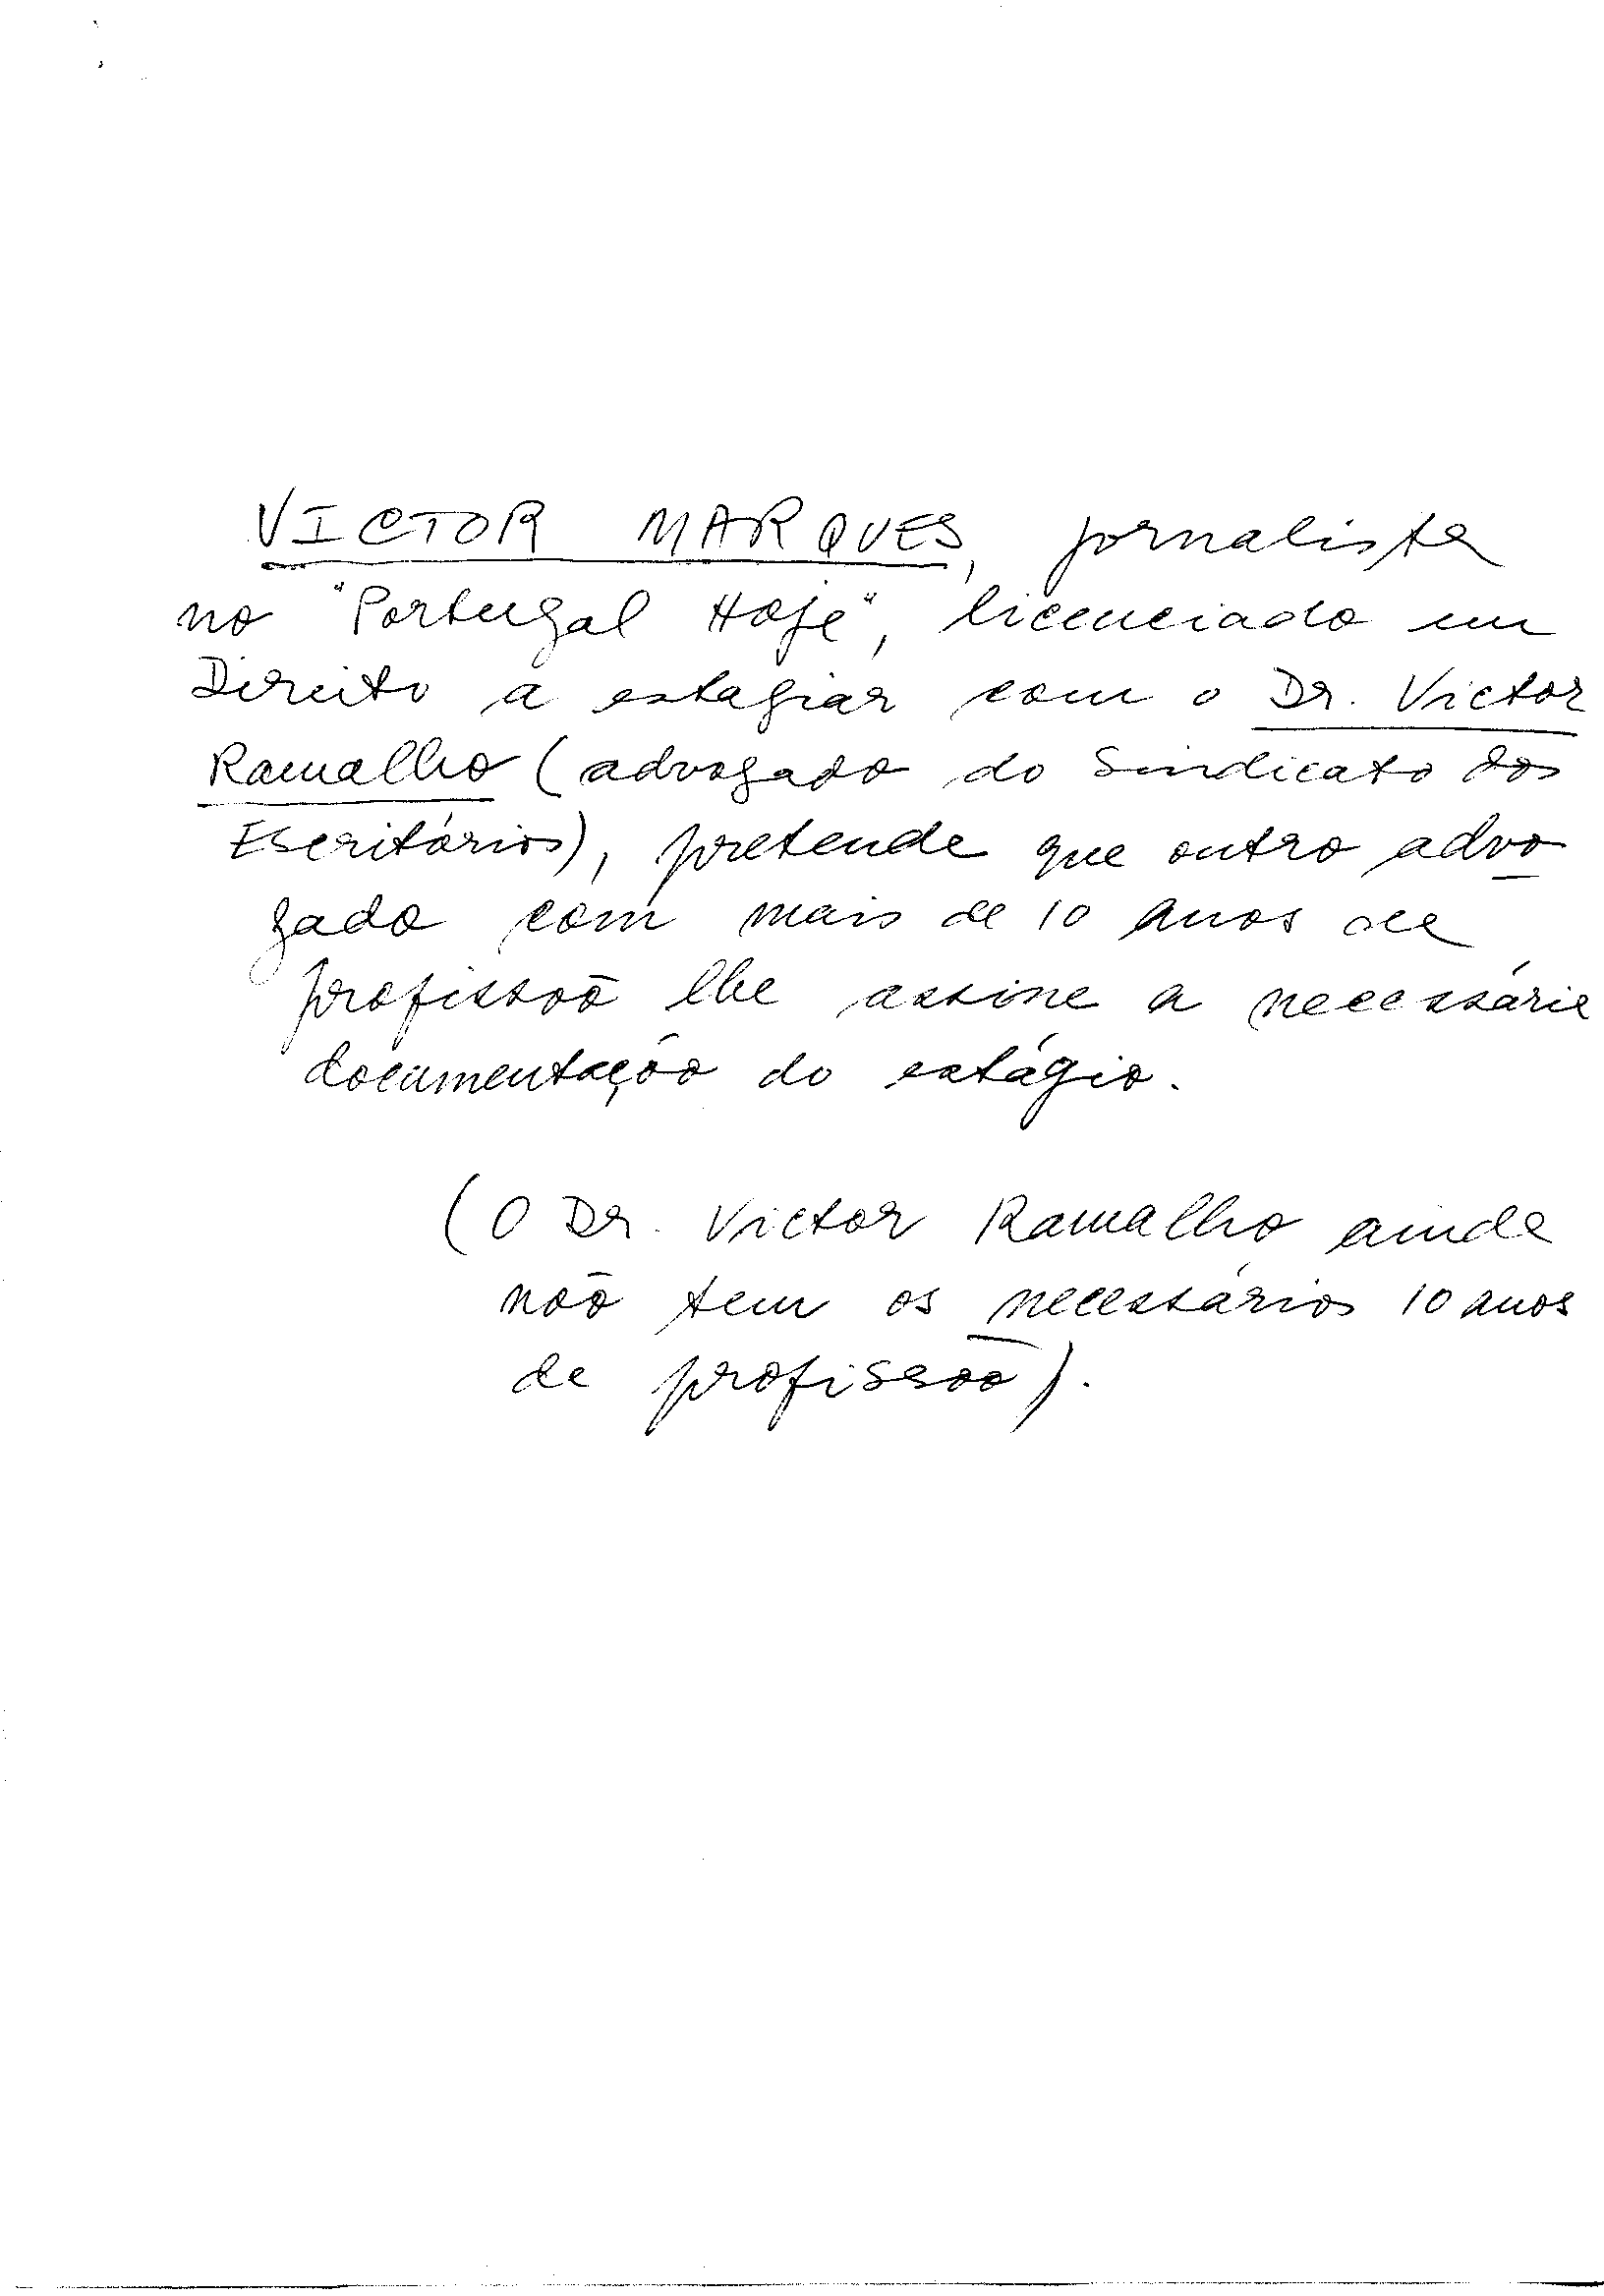 VICTOR MARQUES, jornalista
no "Portugal Hoje", licenciado em
Direito a estagiar com o Dr. Victor
Ramalho (advogado do Sindicato dos
Escritórios), pretende que outro advo
gado com mais de 10 anos de
profissão lhe assine a necessária
documentação do estágio.
(O Dr. Victor Ramalho ainda
não tem os necessários 10 anos
de profissão).